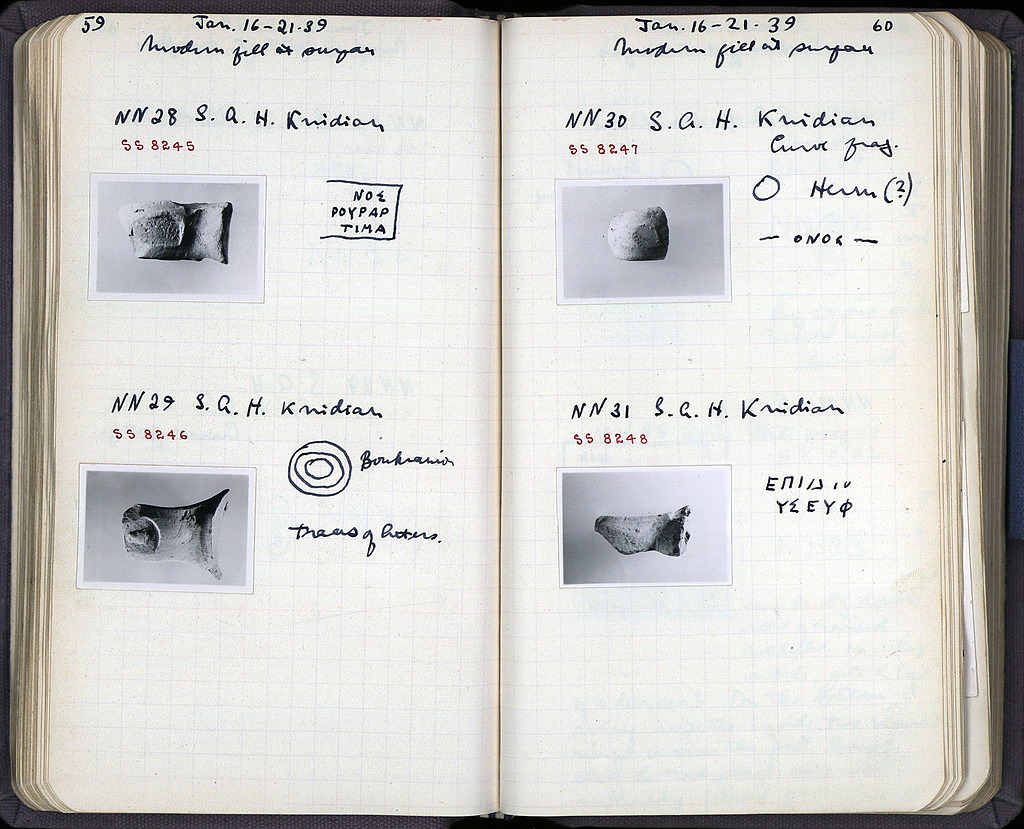 59
Jan. 16-21-39
Modern fill at surface
NN 28 S. A. H. Knidian
SS 8245
ΝΟΣ
ΡΟΥΡΑΡ
ΤΙΜΑ
NN 29 S. A. H. Knidian
SS 8246
Boukranion
Traces of letters.
Jan. 16-21-39
60
Modern fill at surface
NN 30 S. A. H. Knidian
SS 8247
Curve frag.
Herm (?)
— ΟΝΟΣ —
NN 31 S. A. H. Knidian
SS 8248
ΥΣΕΥΦ